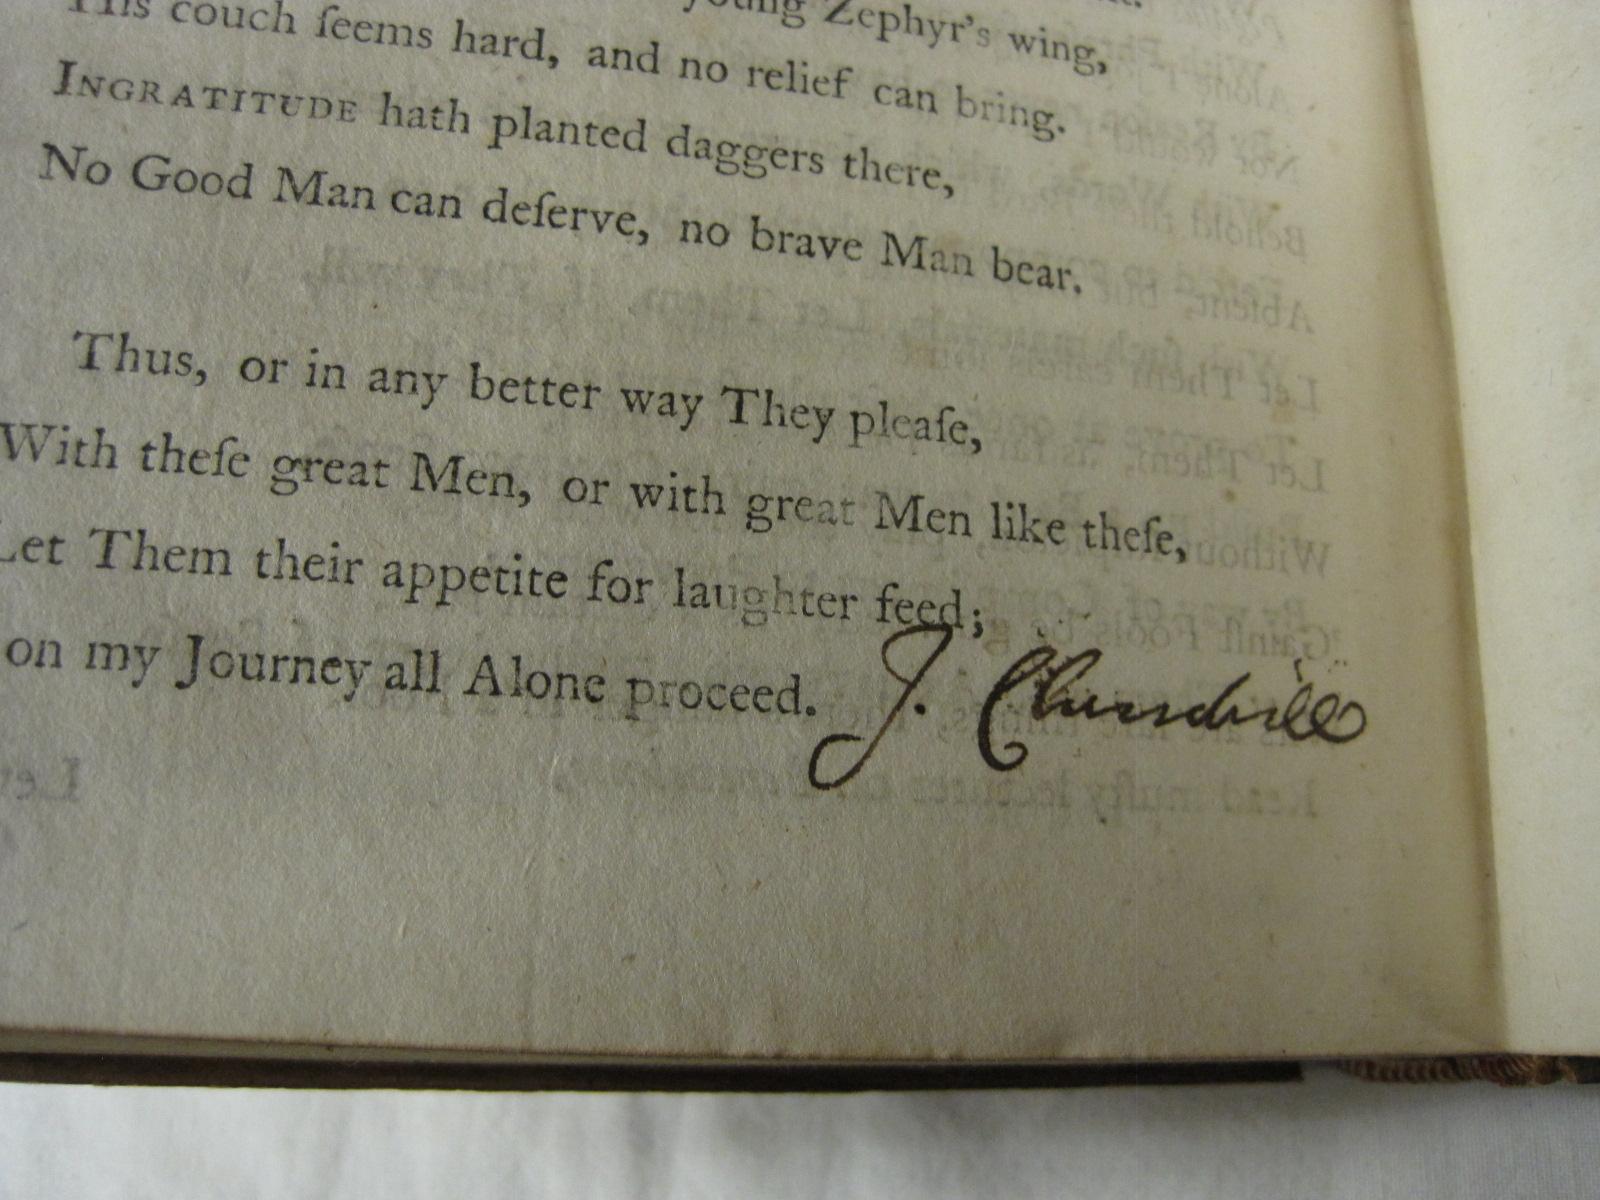 young Zephyr's wing,
His couch ſeems hard, and no relief can bring.
INGRATITUDE hath planted daggers there,
No Good Man can deſerve, no brave Man bear.
Thus, or in any better way They pleaſe,
With theſe great Men, or with great Men like theſe,
Let Them their appetite for laughter feed;
on my Journey all Alone proceed. J. Churchill